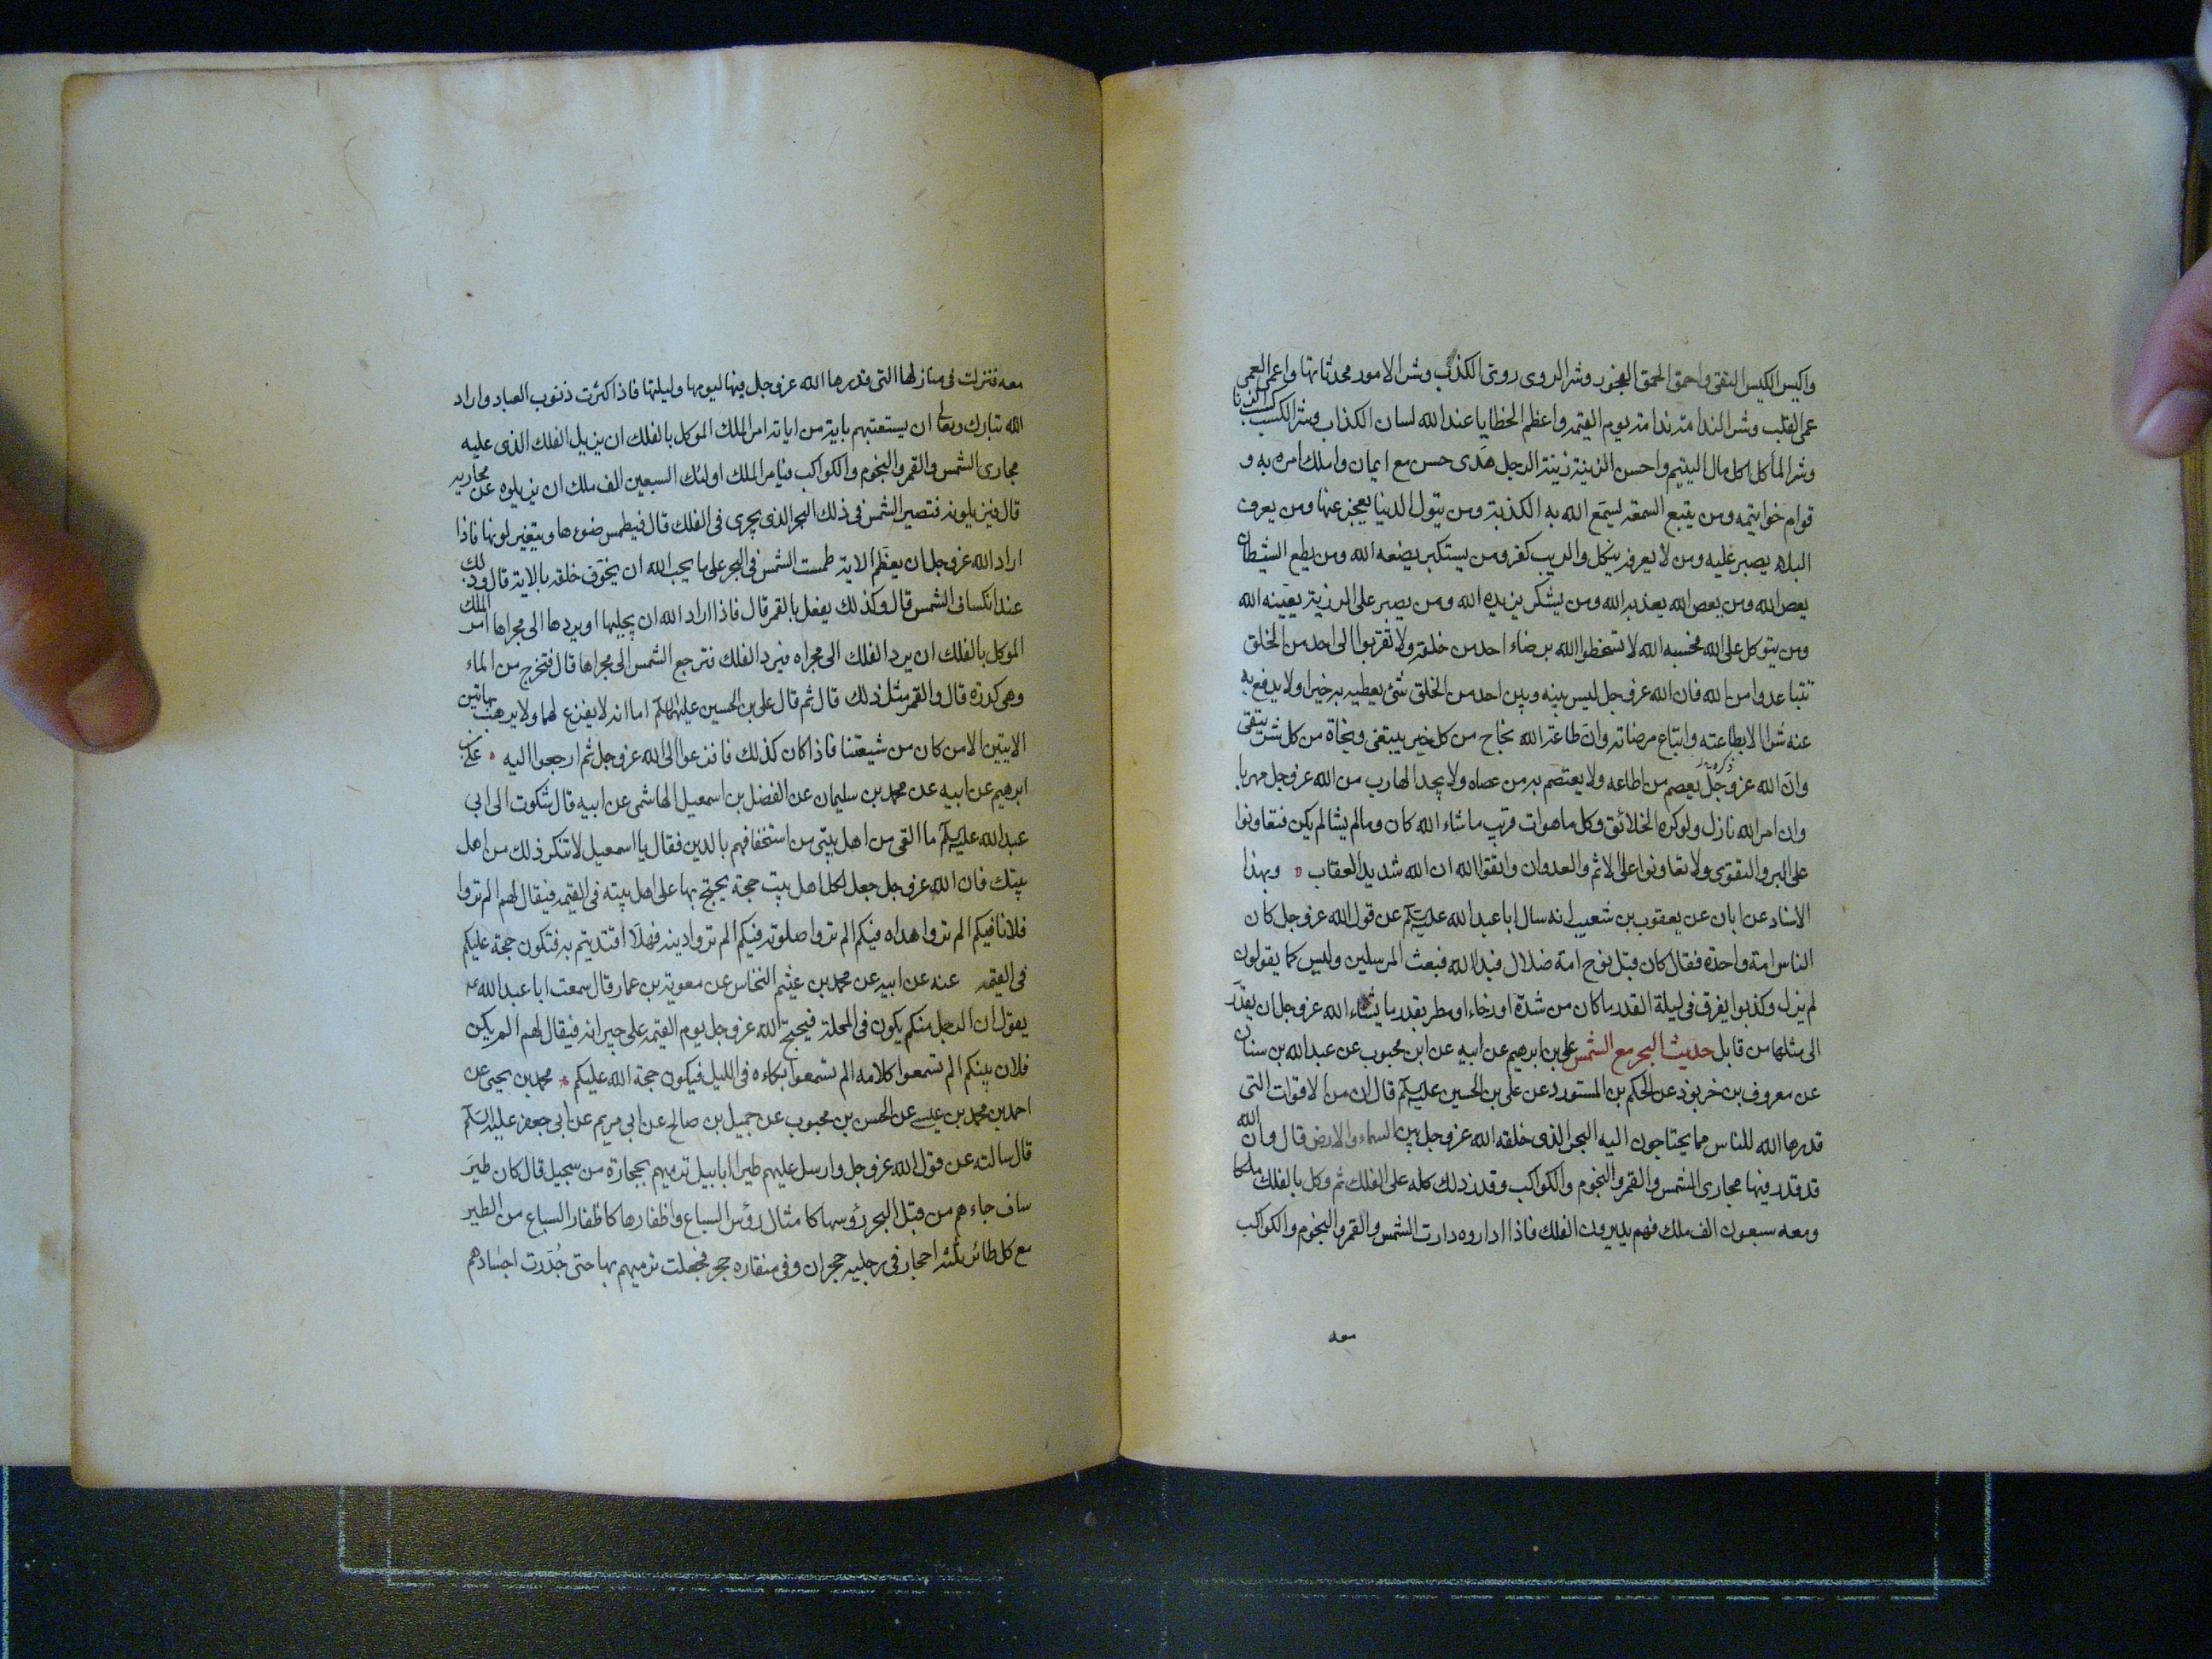 واكيس الكيس التقى واحمق الحمق الفجور وشر الروى روى الكذب وشر الامور محدثاتها واعمى العمى
عمى القلب وشر الندامة ندامة يوم القيمة واعظم الخطايا عند الله لسان الكذاب وشر الكسب كسب الزنا
وشر المأكل اكل مال اليتيم واحسن الزينة زينة الرجل هَدى حسن مع ايمان واملك امره به و
قوام خواتيمه ومن يتبع السمعة يُسَمّع الله به الكذبة ومن يتول الدنيا يعجز عنها ومن يعرف
البلاء يصبر عليه ومن لا يعرفه ينكل والريب كفر ومن يستكبر يضعه الله ومن يطع الشيطان
يعص الله ومن يعص الله يعذبه الله ومن يشكر يزيده الله ومن يصبر على الرزية يعينه الله
ومن يتوكل على الله فحسبه الله لا تسخطوا الله برضاء احد من خلقه ولا تقربوا الى احد من الخلق
تتباعدوا من الله فان الله عز وجل ليس بينه وبين احد من الخلق شئ يعطيه به خيرا ولا يدفع به
عنه شرا الا بطاعته واتباع مرضاته وان طاعة الله نجاح من كل خير يبتغى ونجاة من كل شر يتقى
وان الله عز وجل ذكره يعصم من اطاعه ولا يعتصم به من عصاه ولا يجد الهارب من الله عز وجل مهربا
وان امر الله نازل ولو كره الخلائق وكل ما هو ات قريب ما شاء الله كان وما لم يشا لم يكن فتعاونوا
على البر والتقوى ولا تعاونوا على الاثم والعدوان واتقوا الله ان الله شديد العقاب وبهذا
الاسناد عن ابان عن يعقوب بن شعيب انه سال ابا عبد الله عليه السلم عن قول الله عز وجل كان
الناس امة واحدة فقال كان قبل نوح امة ضلال فبدا لله فبعث المرسلين وليس كما يقولون
لم يزل وكذبوا يفرق فى ليلة القدر ما كان من شدة او رخاء او مطر بقدر ما يشاء الله عز وجل ان يقدّر
الى مثلها من قابل حديث البحر مع الشمس على بن ابرهيم عن ابيه عن ابن محبوب عن عبد الله بن سنان
عن معروف بن خربوذ عن الحكم بن المستورد عن على بن الحسين عليه السلم قال ان من الاقوات التى
قدرها الله للناس مما يحتاجون اليه البحر الذى خلقه الله عز وجل بين السماء والارض قال وان الله
قد قدر فيها مجارى الشمس والقمر والنجوم والكواكب وقدر ذلك كله على الفلك ثم وكل بالفلك ملكا
ومعه سبعون الف ملك فهم يديرون الفلك فاذا اداروه دارت الشمس والقمر والنجوم والكواكب
معه
معه فنزلت فى منازلها التى قدرها الله عز وجل فيها ليومها وليلتها فاذا كثرت ذنوب العباد واراد
الله تبارك وتعالى ان يستعتبهم باية من اياته امر الملك الموكل بالفلك ان يزيل الفلك الذى عليه
مجارى الشمس والقمر والنجوم والكواكب فيامر الملك اولئك السبعين الف ملك ان يزيلوه عن مجاريه
قال فيزيلونه فتصير الشمس فى ذلك البحر الذى يجرى فى الفلك قال فيطمس ضوءها ويتغير لونها فاذا
اراد الله عز وجل ان يعظم الاية طمست الشمس فى البحر على ما يحب الله ان يخوّف خلقه بالاية قال وذلك
عند انكساف الشمس قال وكذلك يفعل بالقمر قال فاذا اراد الله ان يجليها او يردها الى مجراها امر الملك
الموكل بالفلك ان يرد الفلك الى مجراه فيرد الفلك فترجع الشمس الى مجراها قال فتخرج من الماء
وهى كدرة قال والقمر مثل ذلك قال ثم قال على بن الحسين عليهما السلم اما انه لا يفزع لهما ولا يرهب بهاتين
الايتين الا من كان من شيعتنا فاذا كان كذلك فافزعوا الى الله عز وجل ثم ارجعوا اليه على بن
ابرهيم عن ابيه عن محمد بن سليمان عن الفضل بن اسمعيل الهاشمى عن ابيه قال شكوت الى ابى
عبد الله عليه السلم ما القى من اهل بيتى من استخفافهم بالدين فقال يا اسمعيل لا تنكر ذلك من اهل
بيتك فان الله عز وجل جعل لكل اهل بيت حجة يحتج بها على اهل بيته فى القيمة فيقال لهم الم تروا
فلانا فيكم الم تروا هداه فيكم الم تروا صلوته فيكم الم تروا دينه فهلا اقتديتم به فتكون حجة عليكم
فى القيمة عنه عن ابيه عن محمد بن عثيم النخاس عن معوية بن عمار قال سمعت ابا عبد الله ع
يقول ان الرجل منكم يكون فى المحلة فيحتج الله عز وجل يوم القيمة على جيرانه فيقال لهم الم يكن
فلان بينكم الم تسمعوا كلامه الم تسمعوا بكاءه فى الليل فيكون حجة الله عليكم محمد بن يحيى عن
احمد بن محمد بن عيسى عن الحسن بن محبوب عن جميل بن صالح عن ابى مريم عن ابى جعفر عليه السلم
قال سالته عن قول الله عز وجل وارسل عليهم طيرا ابابيل ترميهم بحجارة من سجيل قال كان طير
ساف جاءهم من قبل البحر رؤسها كامثال رؤس السباع واظفارها كاظفار السباع من الطير
مع كل طائر ثلثة احجار فى رجليه حجران وفى منقاره حجر فجعلت ترميهم بها حتى جُدّرت اجسادهم